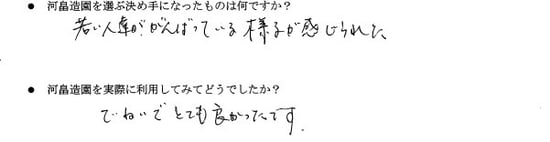 ● 河畠造園を選ぶ決め手になったものは何ですか？
若い人達ががんばっている様子が感じられた
● 河畠造園を実際に利用してみてどうでしたか？
ていねいでとても良かったです.